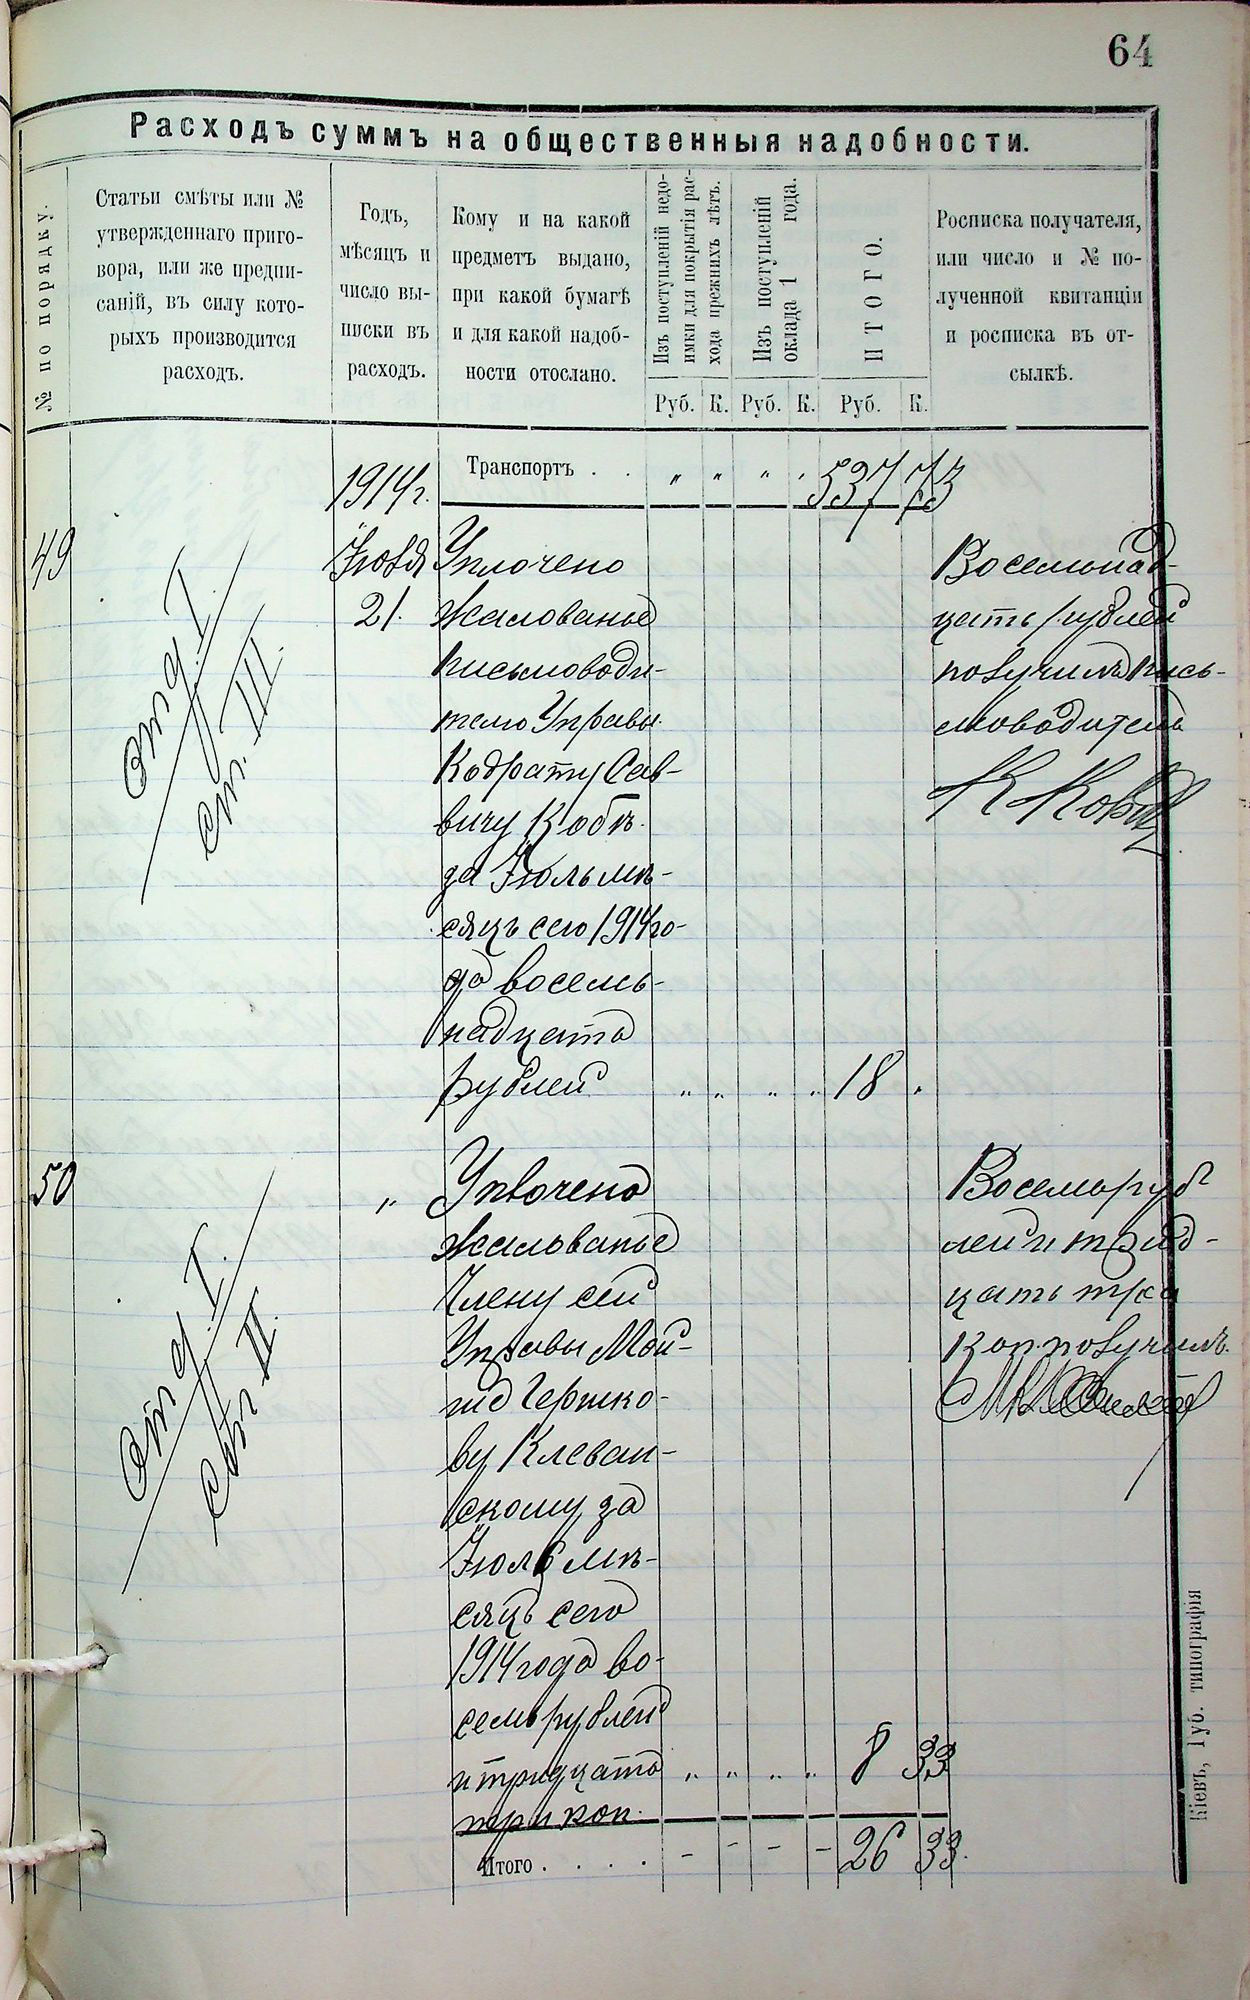 64
Расходъ суммъ на общественныя надобности.
№ по порядку.
Статьи смѣты или №
утвержденнаго приго-
вора, или же предпи-
саній, въ силу кото-
рыхъ производится
расходъ.
Годъ,
мѣсяцъ и
число вы-
писки въ
расходъ.
Кому и на какой
предметъ выдано,
при какой бумагѣ
и для какой надоб-
ности отослано.
Изъ поступленій недо-
имки для покрытія рас-
хода прежнихъ лѣтъ.
Изъ поступленій
оклада 1 года.
ИТОГО.
Росписка получателя,
или число и № по-
лученной квитанціи
и росписка въ от-
сылкѣ.
Руб. К. Руб. К. Руб. К.
1914 г.
Транспортъ . . " " " . 537 73
49
отд. I.
ст. III.
Іюля
21.
Уплочено
жалованье
письмоводи-
телю Управы
Кодрату Сав-
вичу Кобъ.
за Іюль мѣ-
сяцъ сего 1914 го-
да восемь-
надцать
рублей " " " " 18 "
Восемнад-
цать рублей
получилъ пись-
моводитель
К Кобъ
50
отд. I.
ст. II.
"
Уплочено
жалованье
Члену сей
Управы Мой-
шѣ Гершко-
ву Клеван-
скому за
Іюль мѣ-
сяцъ сего
1914 года во-
семь рублей
и тридцать " " " " 8 33
три коп.
Восемь руб
лей и трид-
цать три
коп. получилъ.
Итого . . . . - - - - 26 33.
Кіевъ, Губ. типографія